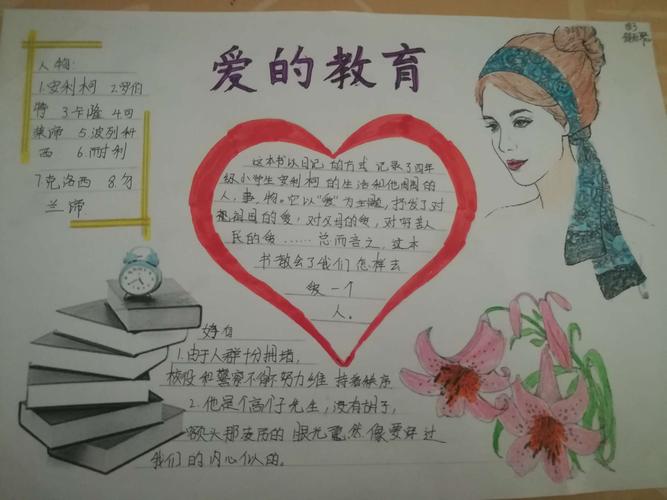 爱的教育
人物:
1.安利柯 2.罗伯
特 3.卡隆 4.可
莱谛 5.波列科
西 6.耐利
7.克洛西 8.勿
兰谛
这本书以日记的方式记录了四年
级小学生安利柯的生活和他周围的
人,事,物。它以"爱"为主题,抒发了对
祖国的爱,对父母的爱,对穷苦人
民的爱……总而言之,这本
书教会了我们怎样去
爱一个
人。
好句
1.由于人群十分拥堵,
校役和警察不懈努力维持着秩序
2.他是个高个子先生,没有胡子,
额头那凌厉的眼光
我们的内心似的。